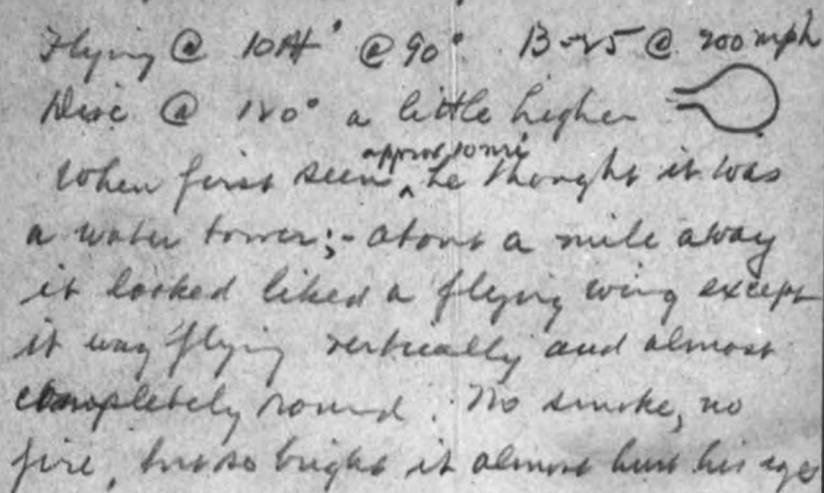 Flying @ 10M' @ 90° B-25 @ 200 mph
Disc @ 180° a little higher
approx 10 mi
When first seen ^ he thought it was
a water tower;- about a mile away
it looked liked a flying wing except
it way flying vertically and almost
completely round. No smoke, no
fire, but so bright it almost hurt his eyes